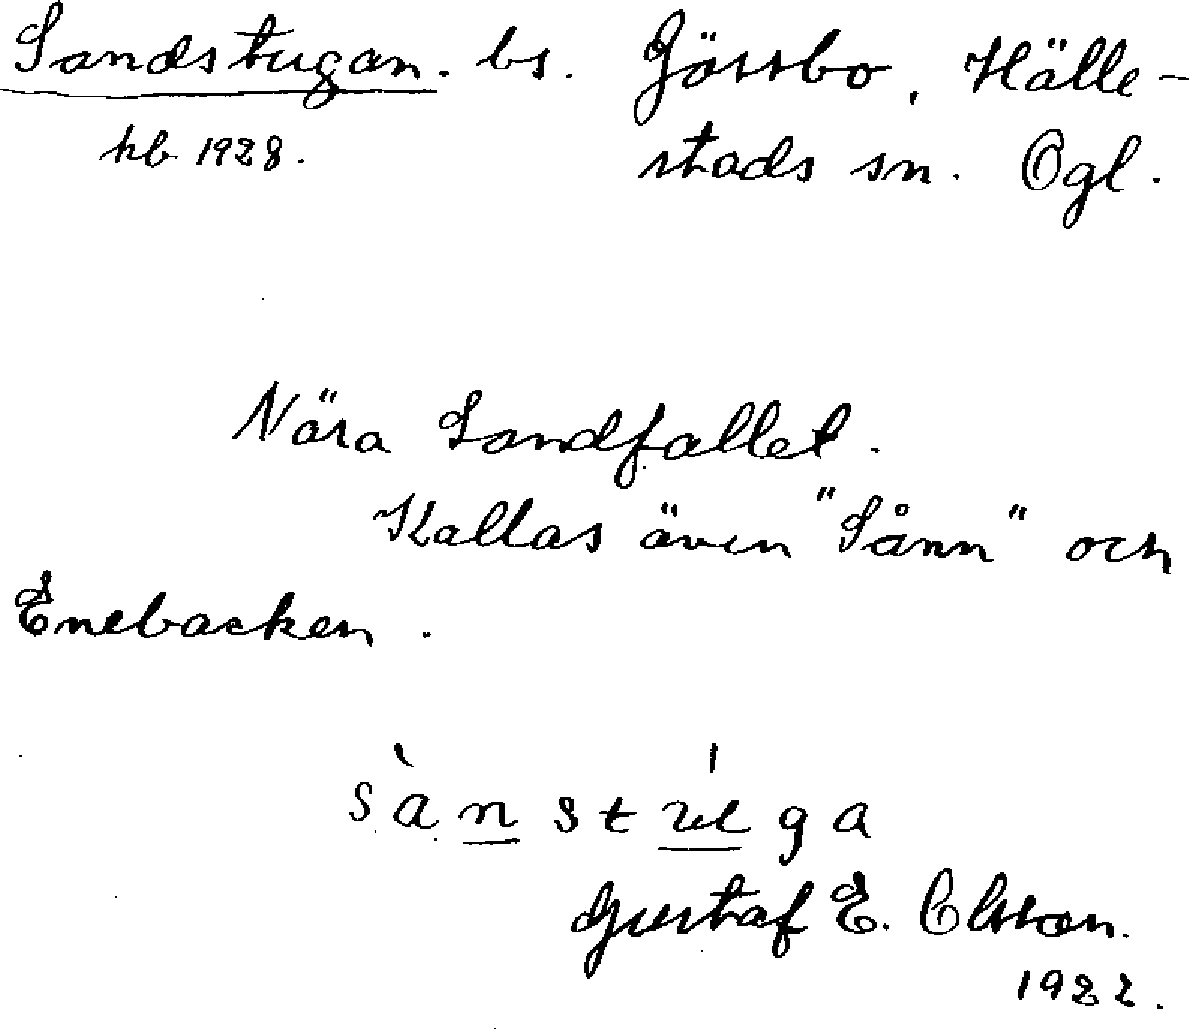 Sandstugan. bs. Jössbo, Hälle-
hb 1928. stads sn. Ögl.
Nära Sandfallet.
Kallas även "Sånn" och
Enebacken.
sànstúga
Gustaf E. Olsson.
1922.